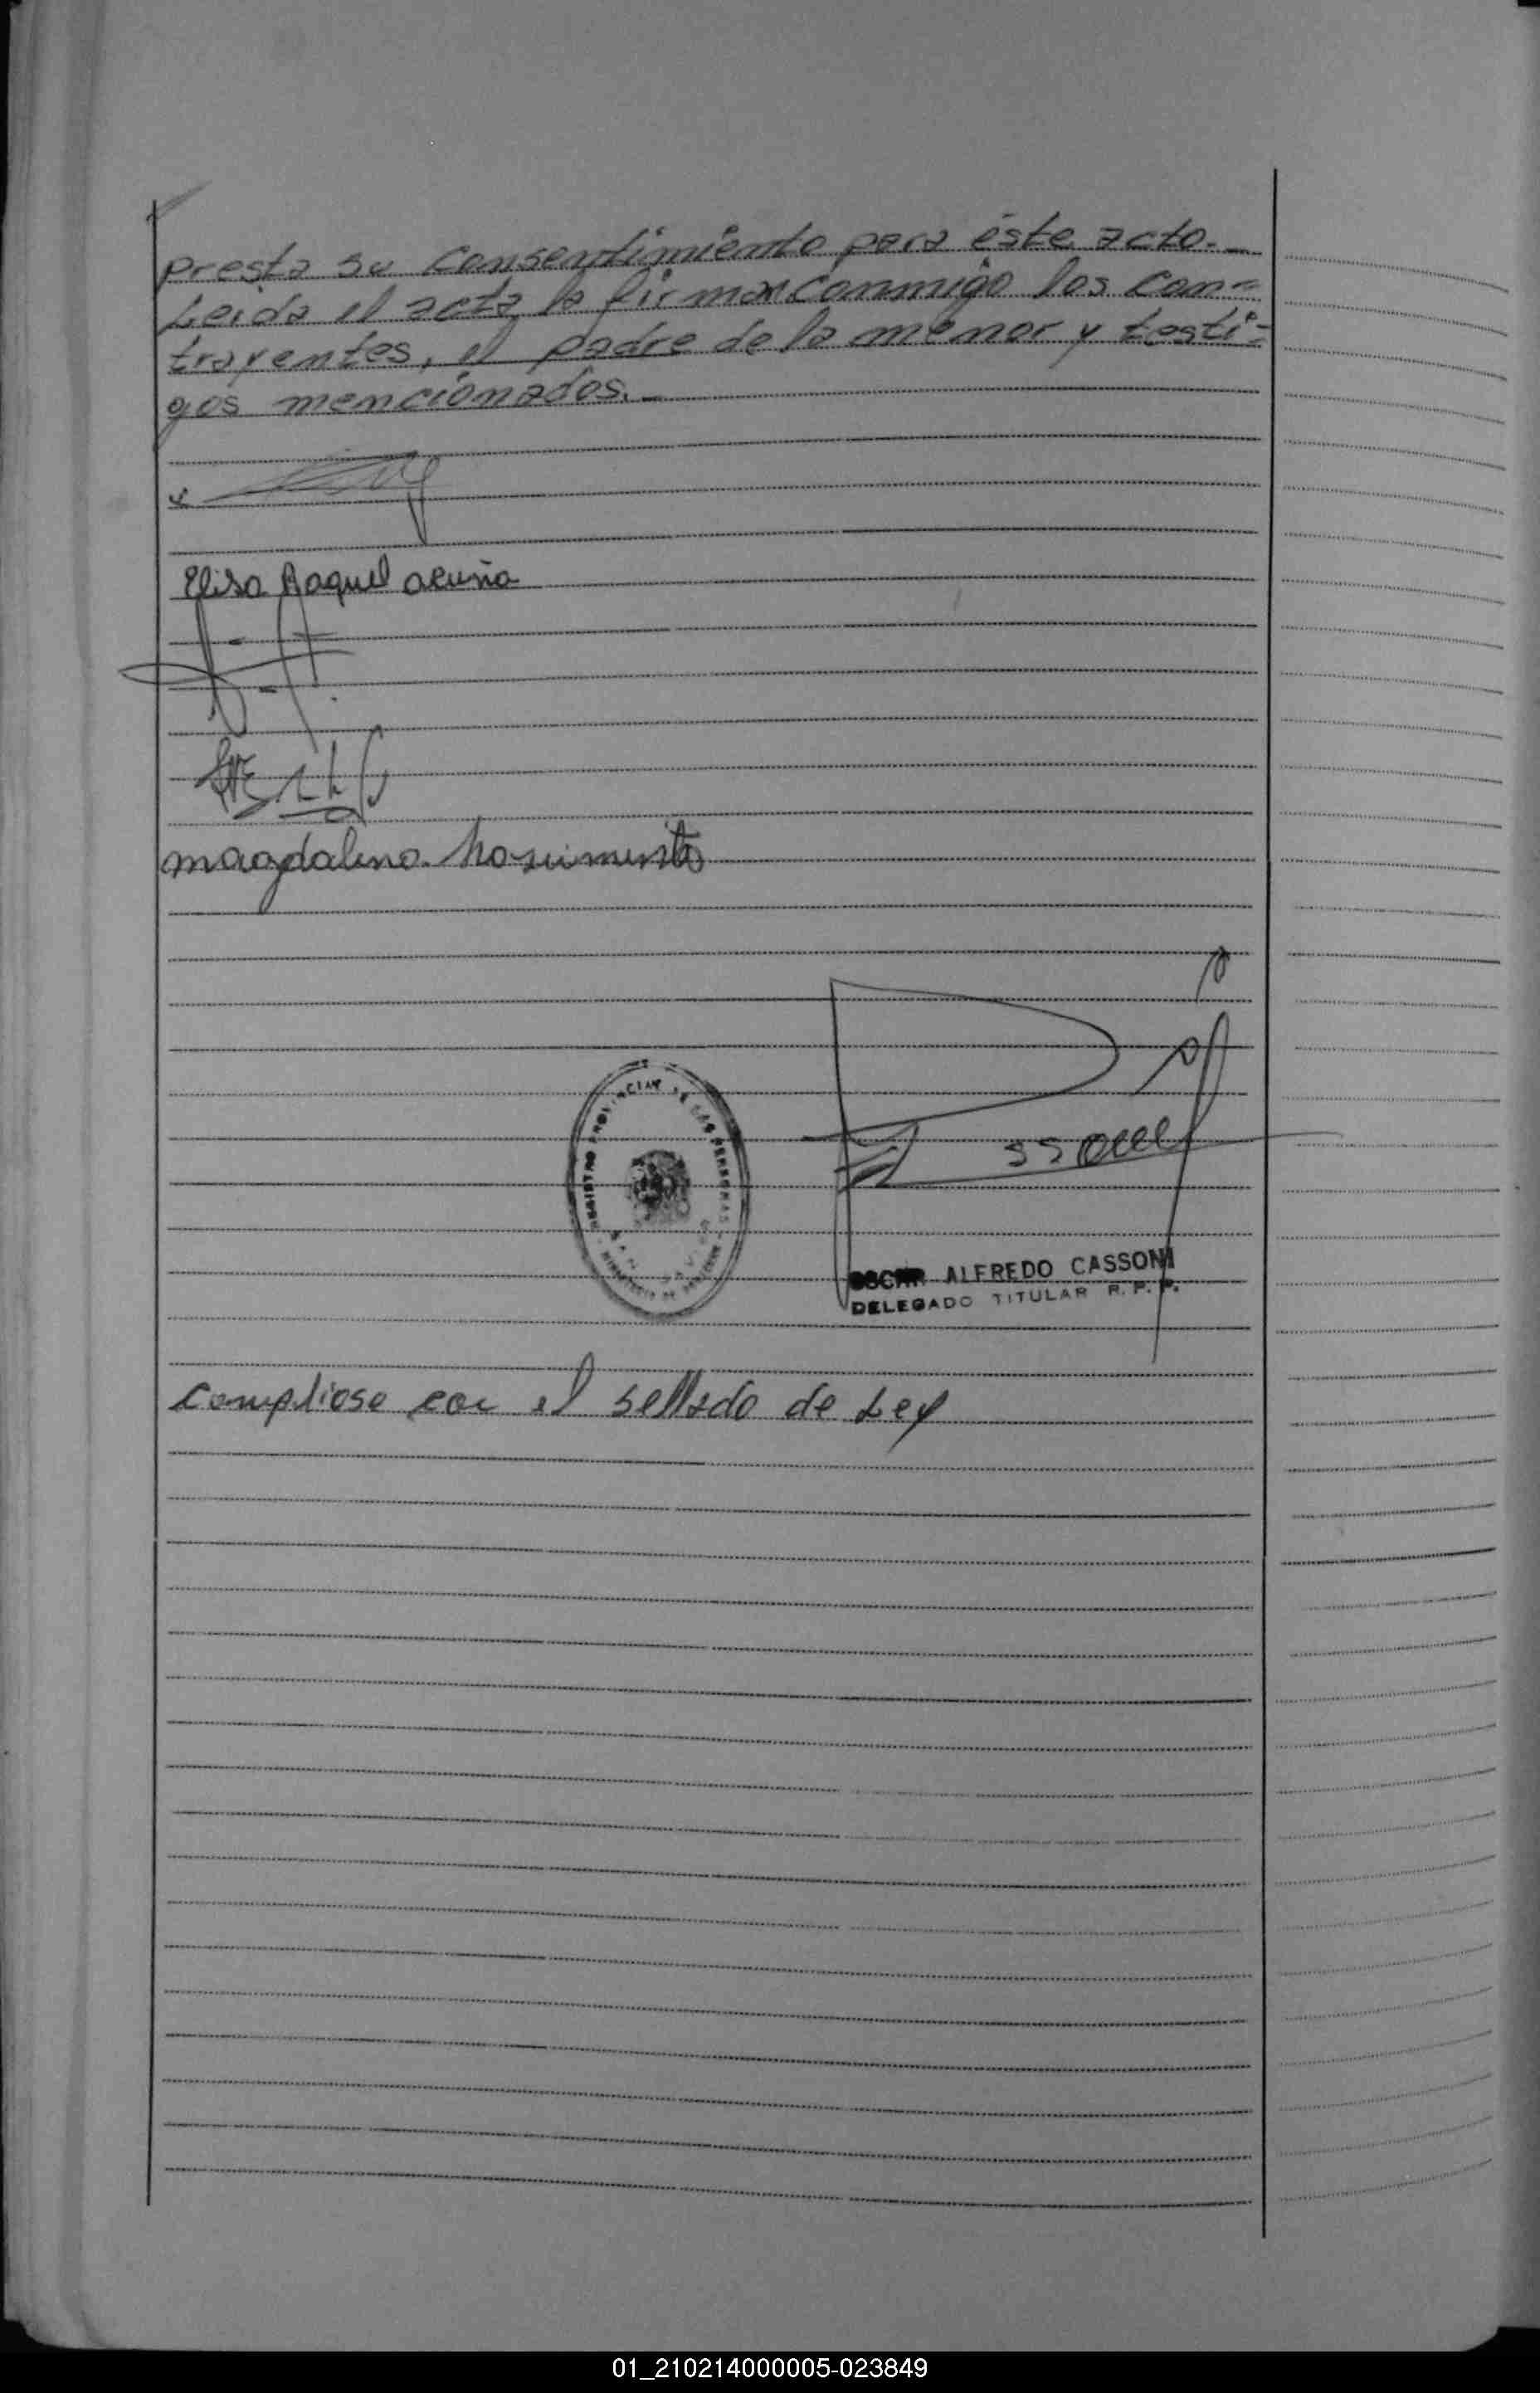 presta su consentimiento para éste acto.-
Leida el acta la firman conmigo los con=
trayentes, el padre de la menor y testi=
gos mencionados.-
Elisa Raquel acuña
magdalena Nascimento
REGISTRO PROVINCIAL DE LAS PERSONAS
OSCAR ALFREDO CASSONI
DELEGADO TITULAR R. P. P.
Compliose con el sellado de Ley
01_210214000005-023849